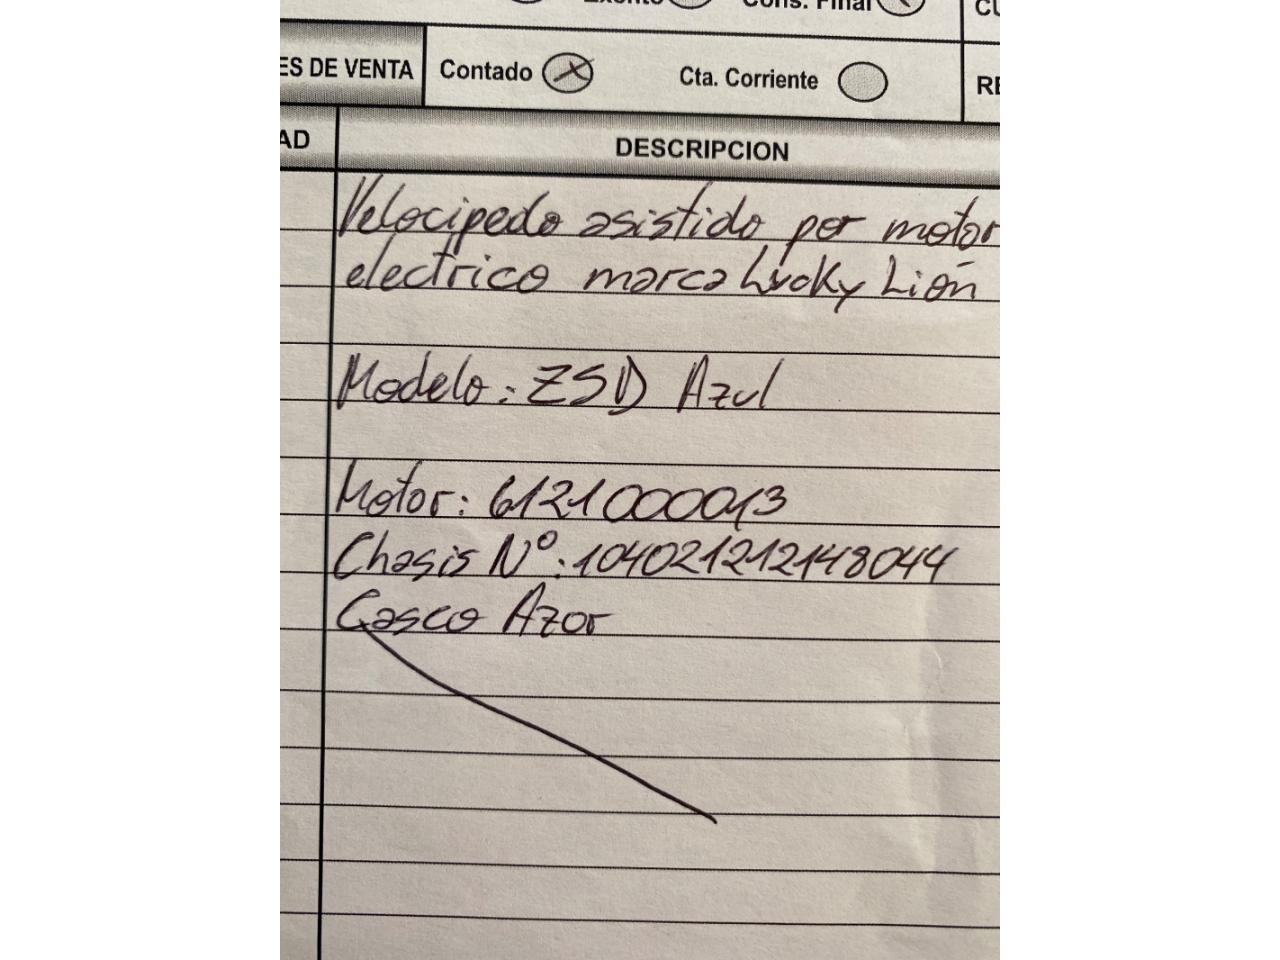 Exento Cons. Final
ES DE VENTA Contado Cta. Corriente
AD DESCRIPCION
Velocipedo asistido por motor
electrico marca Lucky Lion
Modelo: ZSD Azul
Motor: 6121000013
Chasis Nº: 104021212148044
Casco Azor